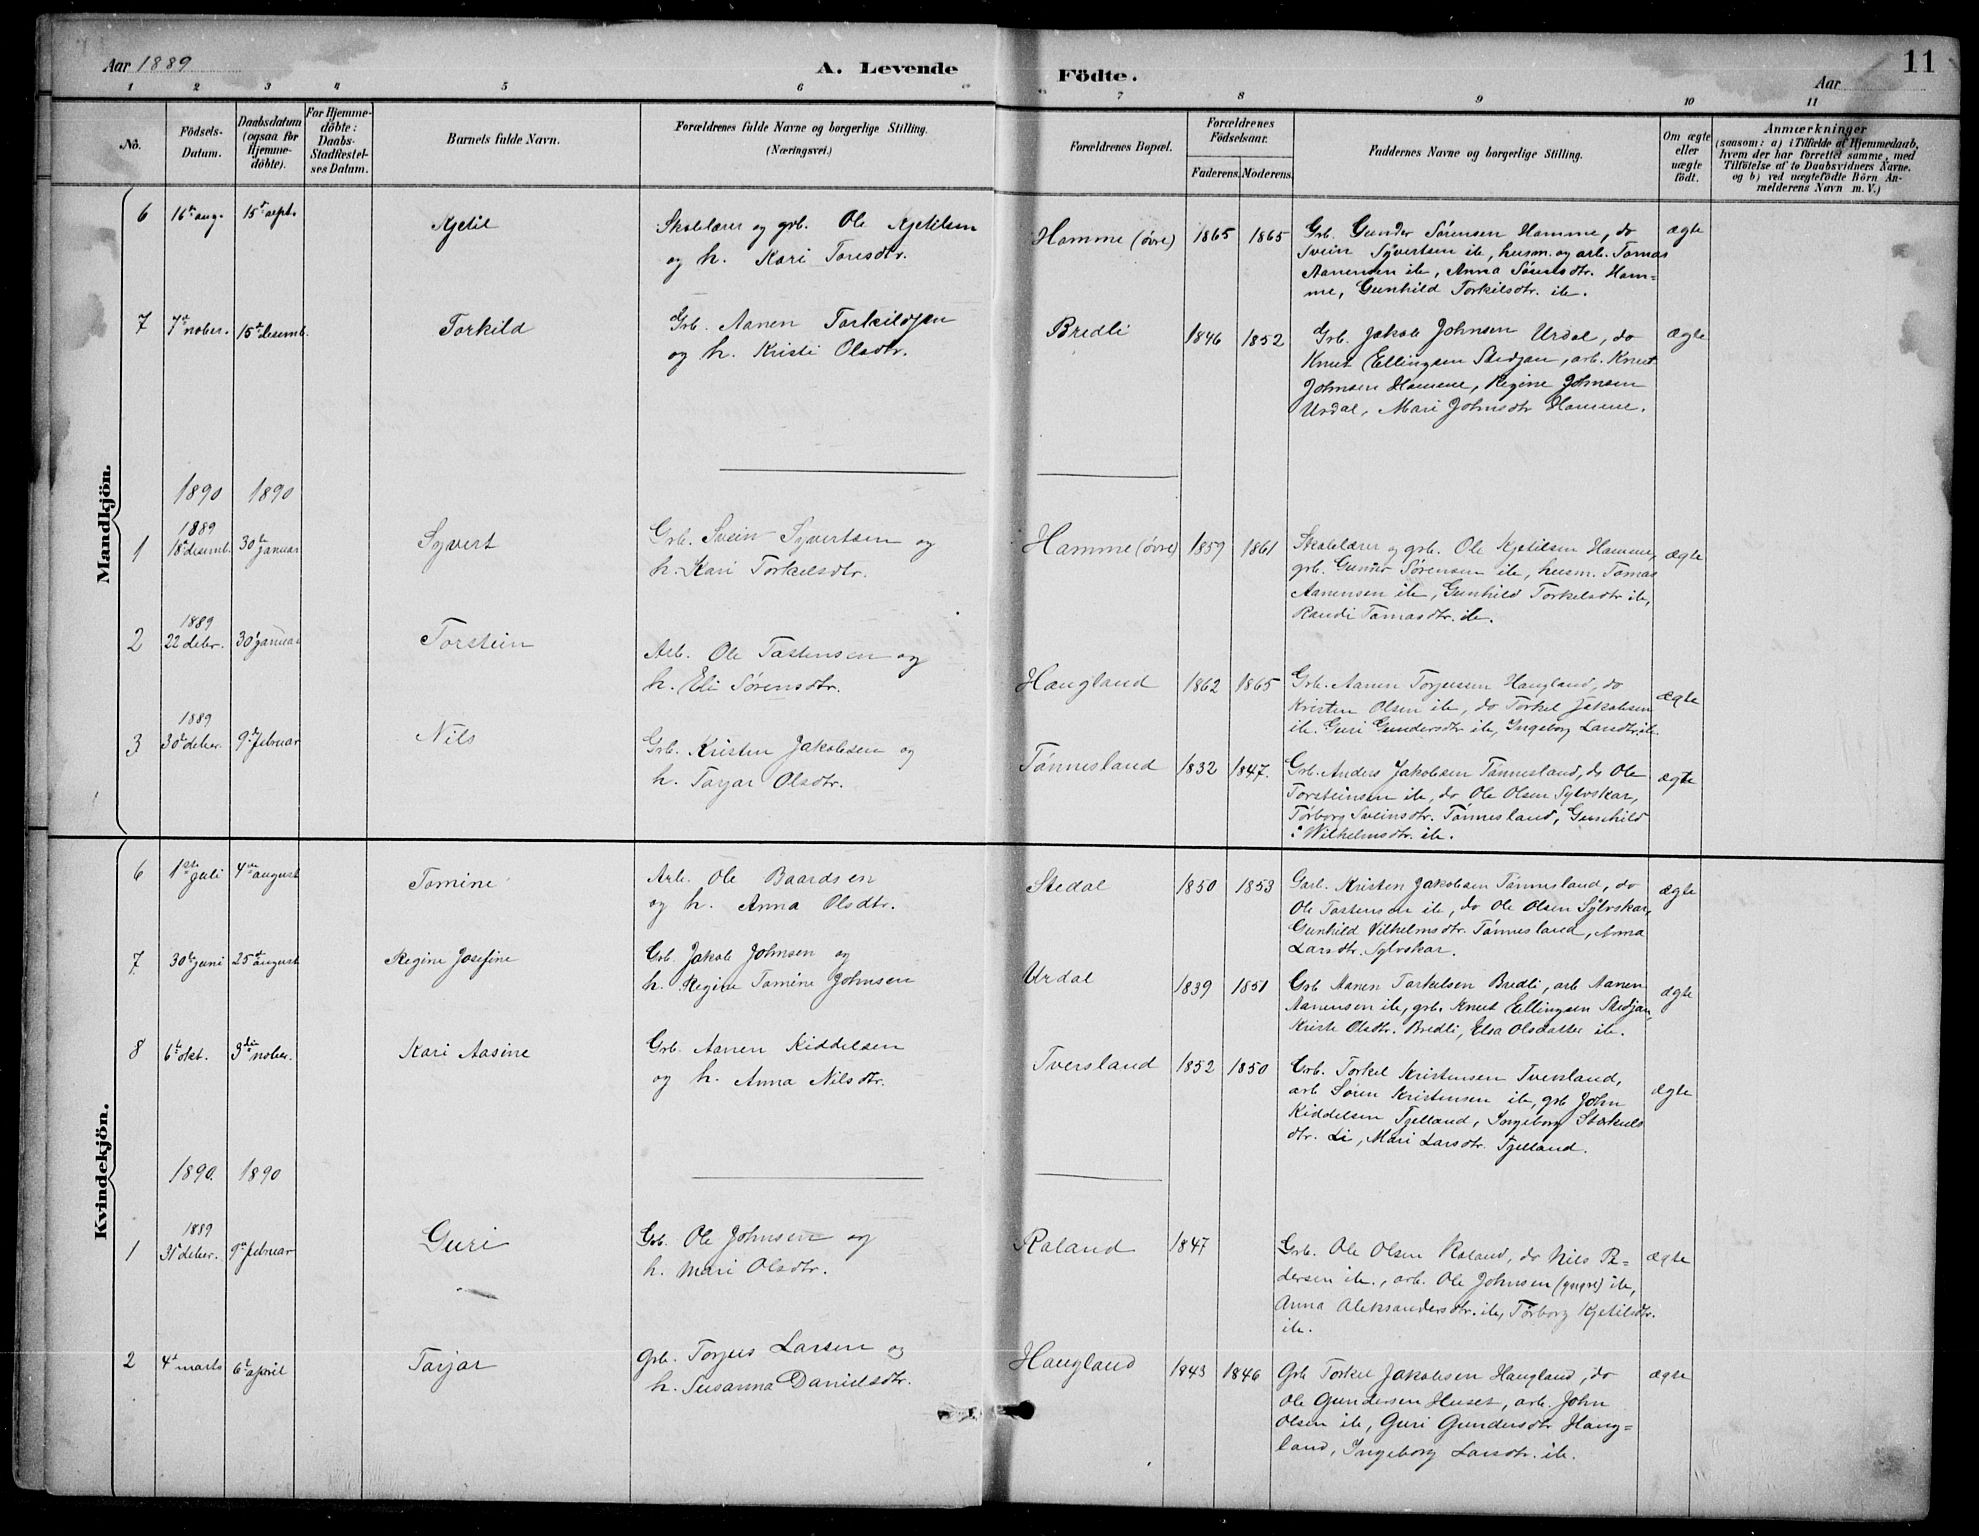 Aar 1889
A. Levende Födte.
Aar
11
1 2 3 4 5 6 7 8 9 10 11
No.
Födsels-
Datum.
Daabsdatum
(ogsaa for
Hjemme-
döbte).
For Hjemme-
döbte:
Daabs-
Stadfestel-
ses Datum.
Barnets fulde Navn.
Forældrenes fulde Navne og borgerlige Stilling.
(Næringsvei.)
Forældrenes Bopæl.
Forældrenes
Födselsaar.
Faderens. Moderens.
Faddernes Navne og borgerlige Stilling.
Om ægte
eller
uægte
födt.
Anmærkninger
(saasom: a) i Tilfælde af Hjemmedaab,
hvem der har forrettet samme, med
Tilföielse af to Daabsvidners Navne.
og b) ved uægtefödte Börn An-
melderens Navn m. V.)
Mandkjön.
6 16de aug. 15de sept. Kjetil
Skolelærer og grb. Ole Kjetilsen
og h. Kari Toresdtr.
Homme (övre) 1865 1865
Grb. Gunder Sörensen Homme, do
Svein Syvertsen ib, husm. og arb. Tomas
Aanensen ib, Anna Sörensdtr. Hom-
me, Gunhild Torkilsdtr. ib.
ægte
7 7de nober. 15de desemb. Torkild
Grb. Aanen Torkildsen
og h. Kristi Olsdtr.
Bredli 1846 1852
Grb. Jakob Johnsen Urdal, do
Knut Ellingsen Stedjan, arb. Knut
Johnsen Homme, Regine Johnsen
Urdal, Mari Johnsdtr Homme.
ægte
1890 1890
1 1889
18de desemb. 30te januar Syvert
Grb. Svein Syvertsen og
h. Kari Torkelsdtr.
Homme (övre) 1859 1861
Skolelærer og grb. Ole Kjetilsen Homme,
grb. Gunder Sörensen ib, husm. Tomas
Aanensen ib, Gunhild Torkelsdtr ib,
Randi Tomasdtr. ib.
ægte
2 1889
22 deber. 30te januar Torstein
Arb. Ole Tostensen og
h. Eli Sörensdtr.
Haugland 1862 1865
Grb. Aanen Torjussen Haugland, do
Kristen Olsen ib, do Torkel Jakobsen
ib. Guri Gundersdtr ib, Ingeborg Larsdtr. ib.
ægte
3 1889
30te deber. 9de februar Nils
Grb. Kristen Jakobsen og
h. Tarjar Olsdtr.
Tönnesland 1832 1847.
Grb. Anders Jakobsen Tönnesland, do Ole
Torsteinsen ib, do Ole Olsen Sylvskar,
Törborg Sveinsdtr. Tönnesland, Gunhild
Wilhelmsdtr. ib.
ægte
Kvindekjön.
6 1ste juli 4de august Tomine
Arb. Ole Baardsen
og h. Anna Olsdtr.
Stedal 1850 1853
Garb. Kristen Jakobsen Tönnesland, do
Ole Tostensen ib, do Ole Olsen Sylvskar,
Gunhild Vilhelmsdtr. Tönnesland, Anna
Larsdtr. Sylvskar.
ægte
7 30te juni 25de august Regine Josefine
Grb. Jakob Johnsen og
h. Regine Tomine Johnsen
Urdal 1839 1851
Grb Aanen Torkelsen Bredli, arb Aanen
Aanensen ib, grb. Knut Ellingsen Stedjan,
Kristi Olsdtr. Bredli, Elsa Olsdatter ib.
ægte
8 6te okt. 3die nober. Kari Aasine
Grb. Aanen Kiddelsen
og h. Anna Nilsdtr.
Tversland 1852 1850
Grb. Torkel Kristensen Tversland,
arb Sören Kristensen ib, grb John
Kiddelsen Fjelland, Ingeborg Storkuls
dtr. Li, Mari Larsdtr. Fjelland.
ægte
1890. 1890
1 1889
31te deber. 9de februar Guri
Grb. Ole Johnsen og
h. Mari Olsdtr.
Roland 1847
Grb. Ole Olsen Roland, do Nils Pe-
dersen ib., arb. Ole Johnsen (yngre) ib,
Anna Aleksandersdtr. ib, Törborg Kjetilsdtr.
ib.
ægte
2 4de marts 6te april Tarjar
Grb. Torjus Larsen og
h. Susanna Danielsdtr.
Haugland 1843 1846
Grb Torkel Jakobsen Haugland, do
Ole Gundersen Huset, arb. John
Olsen ib, Guri Gundersdtr Haug-
land, Ingeborg Larsdtr. ib.
ægte